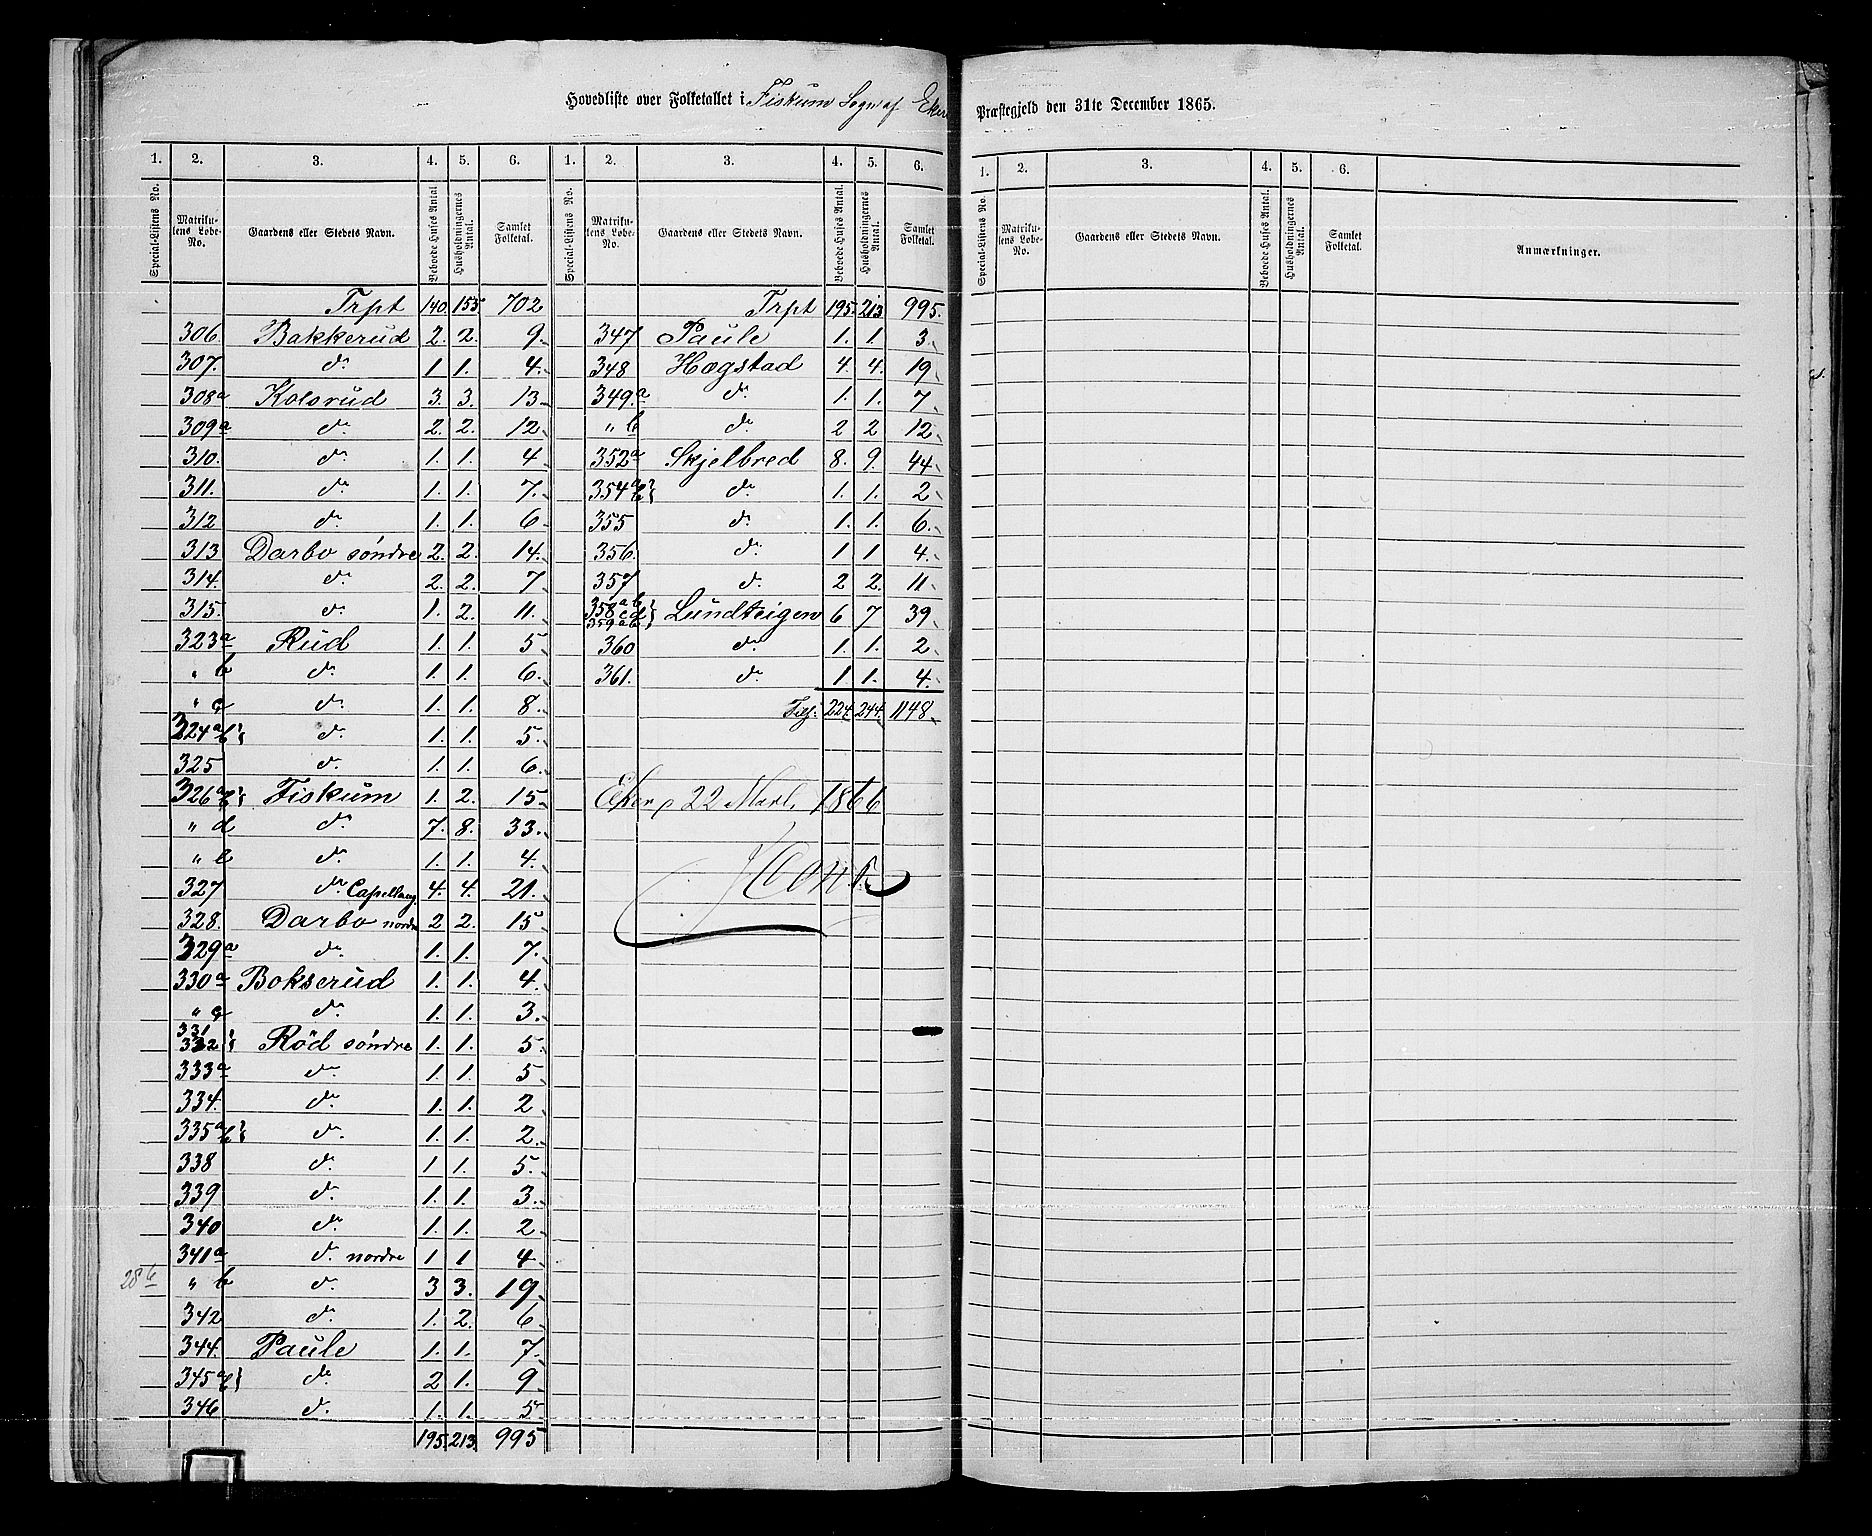 Hovedliste over Folketallet i Fiskum Sogn af Eker Præstegjeld den 31te December 1865.
1. 2. 3. 4. 5. 6. 1. 2. 3. 4. 5. 6.
Special-Listens No. Matrikulens Løbe-No. Gaardens eller Stedets Navn. Beboede Huses Antal. Husholdningernes Antal. Samlet Folketal. Special-Listens No. Matrikulens Løbe-No. Gaardens eller Stedets Navn. Beboede Huses Antal. Husholdningernes Antal. Samlet Folketal.
Trpt 140. 155. 702
306. Bakkerud 2. 2. 9.
307. do 1 1. 4.
308a Kolsrud 3. 3. 13
309a do 2. 2. 12
310. do 1. 1. 4
311. do 1. 1. 7.
312 do 1. 1. 6
313 Darbo søndre 2. 2. 14.
314. do 2. 2. 7
315. do 1. 2. 11.
323a Rud 1. 1. 5
" b do 1. 1. 6.
" c do 1. 1. 8.
324ab do 1. 1. 5.
325 do 1. 1. 6.
326ab Fiskum 1. 2. 15
" d do 7. 8. 33.
" e do 1. 1. 4.
327 do Capellang. 4. 4. 21.
328. Darbo nordre 2 2. 15
329a do 1. 1. 7.
330a Bokserud 1. 1. 4.
" c do 1. 1. 3.
331 332 Rød søndre 1. 1. 5
333a do 1. 1. 5
334. do 1. 1. 2
335ab do 1. 1. 2.
338 do 1 1. 5.
339 do 1. 1. 3.
340 do 1. 1. 2
341a do nordre 1 1 4
28b " b do 3 3. 19
342 do 1. 2. 6
344. Paule 1. 1. 7.
345ab do 2 1. 9
346 do 1. 1. 5
195. 213. 995
Trpt 195. 213 995.
347 Paule 1. 1. 3.
348 Hægstad 4. 4. 19
349.a do 1. 1. 7
" b do 2 2 12
352a Skjelbred 8. 9. 44
354ab do 1. 1. 2
355 do 1. 1. 6.
356. do 1. 1 4.
357 do 2 2. 11
358ab cd 359ab Lundteigen 6 7 39
360 do 1. 1. 2
361. do 1. 1. 4.
224. 244. 1148
Eker 22 1866
1. 2. 3. 4. 5. 6.
Special-Listens No. Matrikulens Løbe-No. Gaardens eller Stedets Navn. Beboede Huses Antal. Husholdningernes Antal. Samlet Folketal. Anmærkninger.